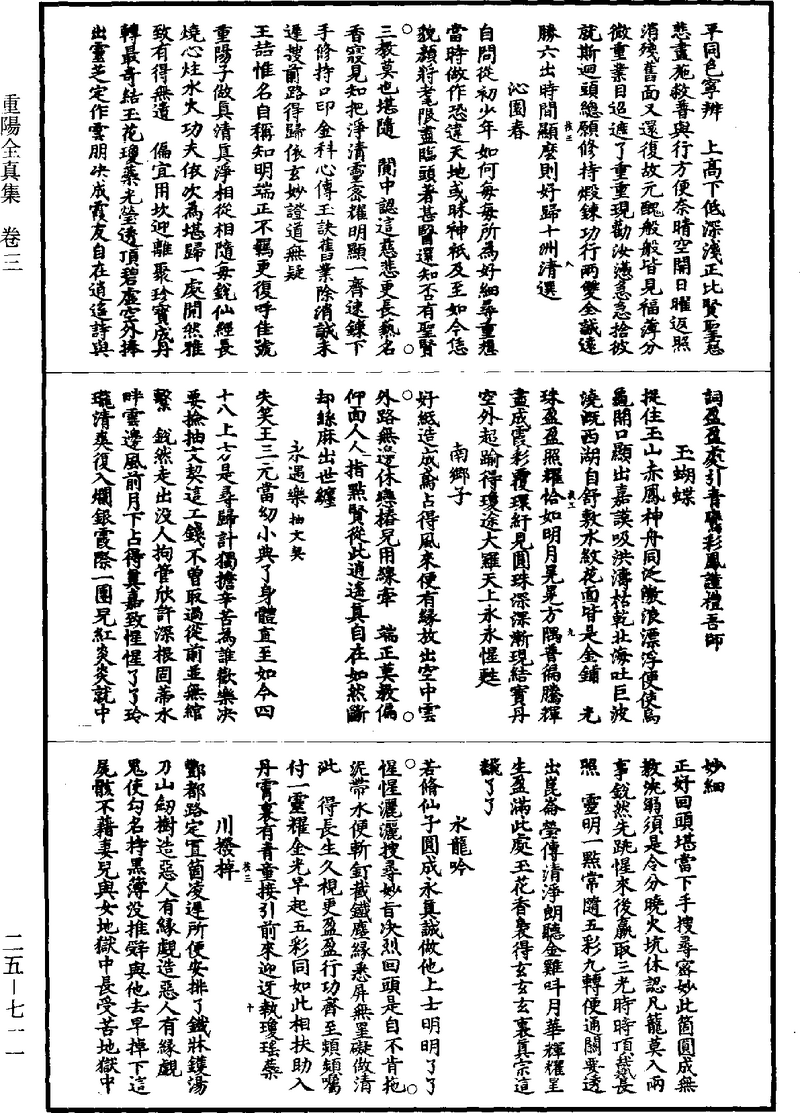 重陽全真集　卷三
二五—七一一
平同色寧辨　上高下低深淺正比賢聖慈
悲盡施救普與行方便奈晴空開日曜返照
消殘舊面又還復故元醜般般皆見福薄分
微重業日迢遮了重重現勸汝懑急急捨彼
就斯迴頭總願修持煅鍊功行兩雙全誠遠
勝六出時間顯麼則好歸十洲清選
沁園春
自問從初少年如何每每所為好細尋重想
當時做作恐違天地或昧神祇及至如今恁
貌顏將耄限盡臨頭著甚醫還知否有聖賢
三教莫也堪隨　閴中認這慈悲更長蓺名
香寂見知把淨清靈愙耀明顯一齊速鍊下
手修持口印金科心傳玉訣舊業除消誠未
遲搜前路得歸依玄妙證道無疑
王喆惟名自稱知明端正不羈更復呼佳號
重陽子做真清真淨相從相隨每銳仙經長
燒心炷水火功夫依次為堪歸一處開然雅
致有得無遺　偏宜用坎迎離聚珍寶成丹
轉最奇結玉花瓊蘂光瑩透頂碧虛空外捧
出靈芝定作雲朋決成霞友自在逍遙詩與
詞盈盈處引青鸞彩鳳謹禮吾師
玉蝴蝶
捉住玉山赤鳳神舟同泛激浪漂浮便使烏
龜開口顯出嘉謨吸洪濤枯乾北海吐巨波
澆溉西湖自舒敷水紋花面皆是金鋪　光
珠盈盈照耀恰如明月晃晃方隅普徧騰輝
畫成霞彩覆環紆見圓珠深深漸現結寶丹
空外超踰得瓊途大羅天上永永惺甦
南鄉子
好紙造成為占得風來便有緣放出空中雲
外路無邊休戀樁兒用線牽　端正莫教偏
仰面人人指點賢從此逍遙真自在如然斷
却絲麻出世纏
永遇樂 抽文契
失笑王三元當幼小典了身體直至如今四
十八上方是尋歸計獨擔辛苦為誰歡樂決
要撿抽文契這工錢不曾取過從前並無綰
繫　銳然走出没人拘管欣許深根固蒂水
畔雲邊風前月下占得真嘉致惺惺了了玲
瓏清爽復入爛銀霞際一團兒紅炎炎就中
妙細
正好回頭堪當下手搜尋密妙此箇圓成無
教洗弱須是令分曉火坑休認凡籠莫入兩
事銳然先跳惺來後贏取三光時時頂戴長
照　靈明一點常隨五彩九轉便通關要透
出崑崙瑩傳清淨朗聽金雞呌月華輝耀呈
生盈滿此處玉花香裊得玄玄玄裏真宗這
囗了了
水龍吟
若脩仙子圓成永真誠做他上士明明了了
惺惺灑灑搜尋妙旨决烈回頭是自不肯拖
泥帶水便斬釘截鐵塵緣悉屏無罣礙做清
泚　得長生久視更盈盈行功齊至頻頻囑
付一靈耀金光早起五彩同如此相扶助入
丹霄裏有青童接引前來迎迓執瓊瑤蘂
川撥棹
酆都路定置箇凌遲所便安排了鐵牀鑊湯
刀山劒樹造惡人有緣覷造惡人有緣覷
鬼使勾名持黑簿没推辤與他去早掉下這
屍骸不藉妻兒與女地獄中長受苦地獄中